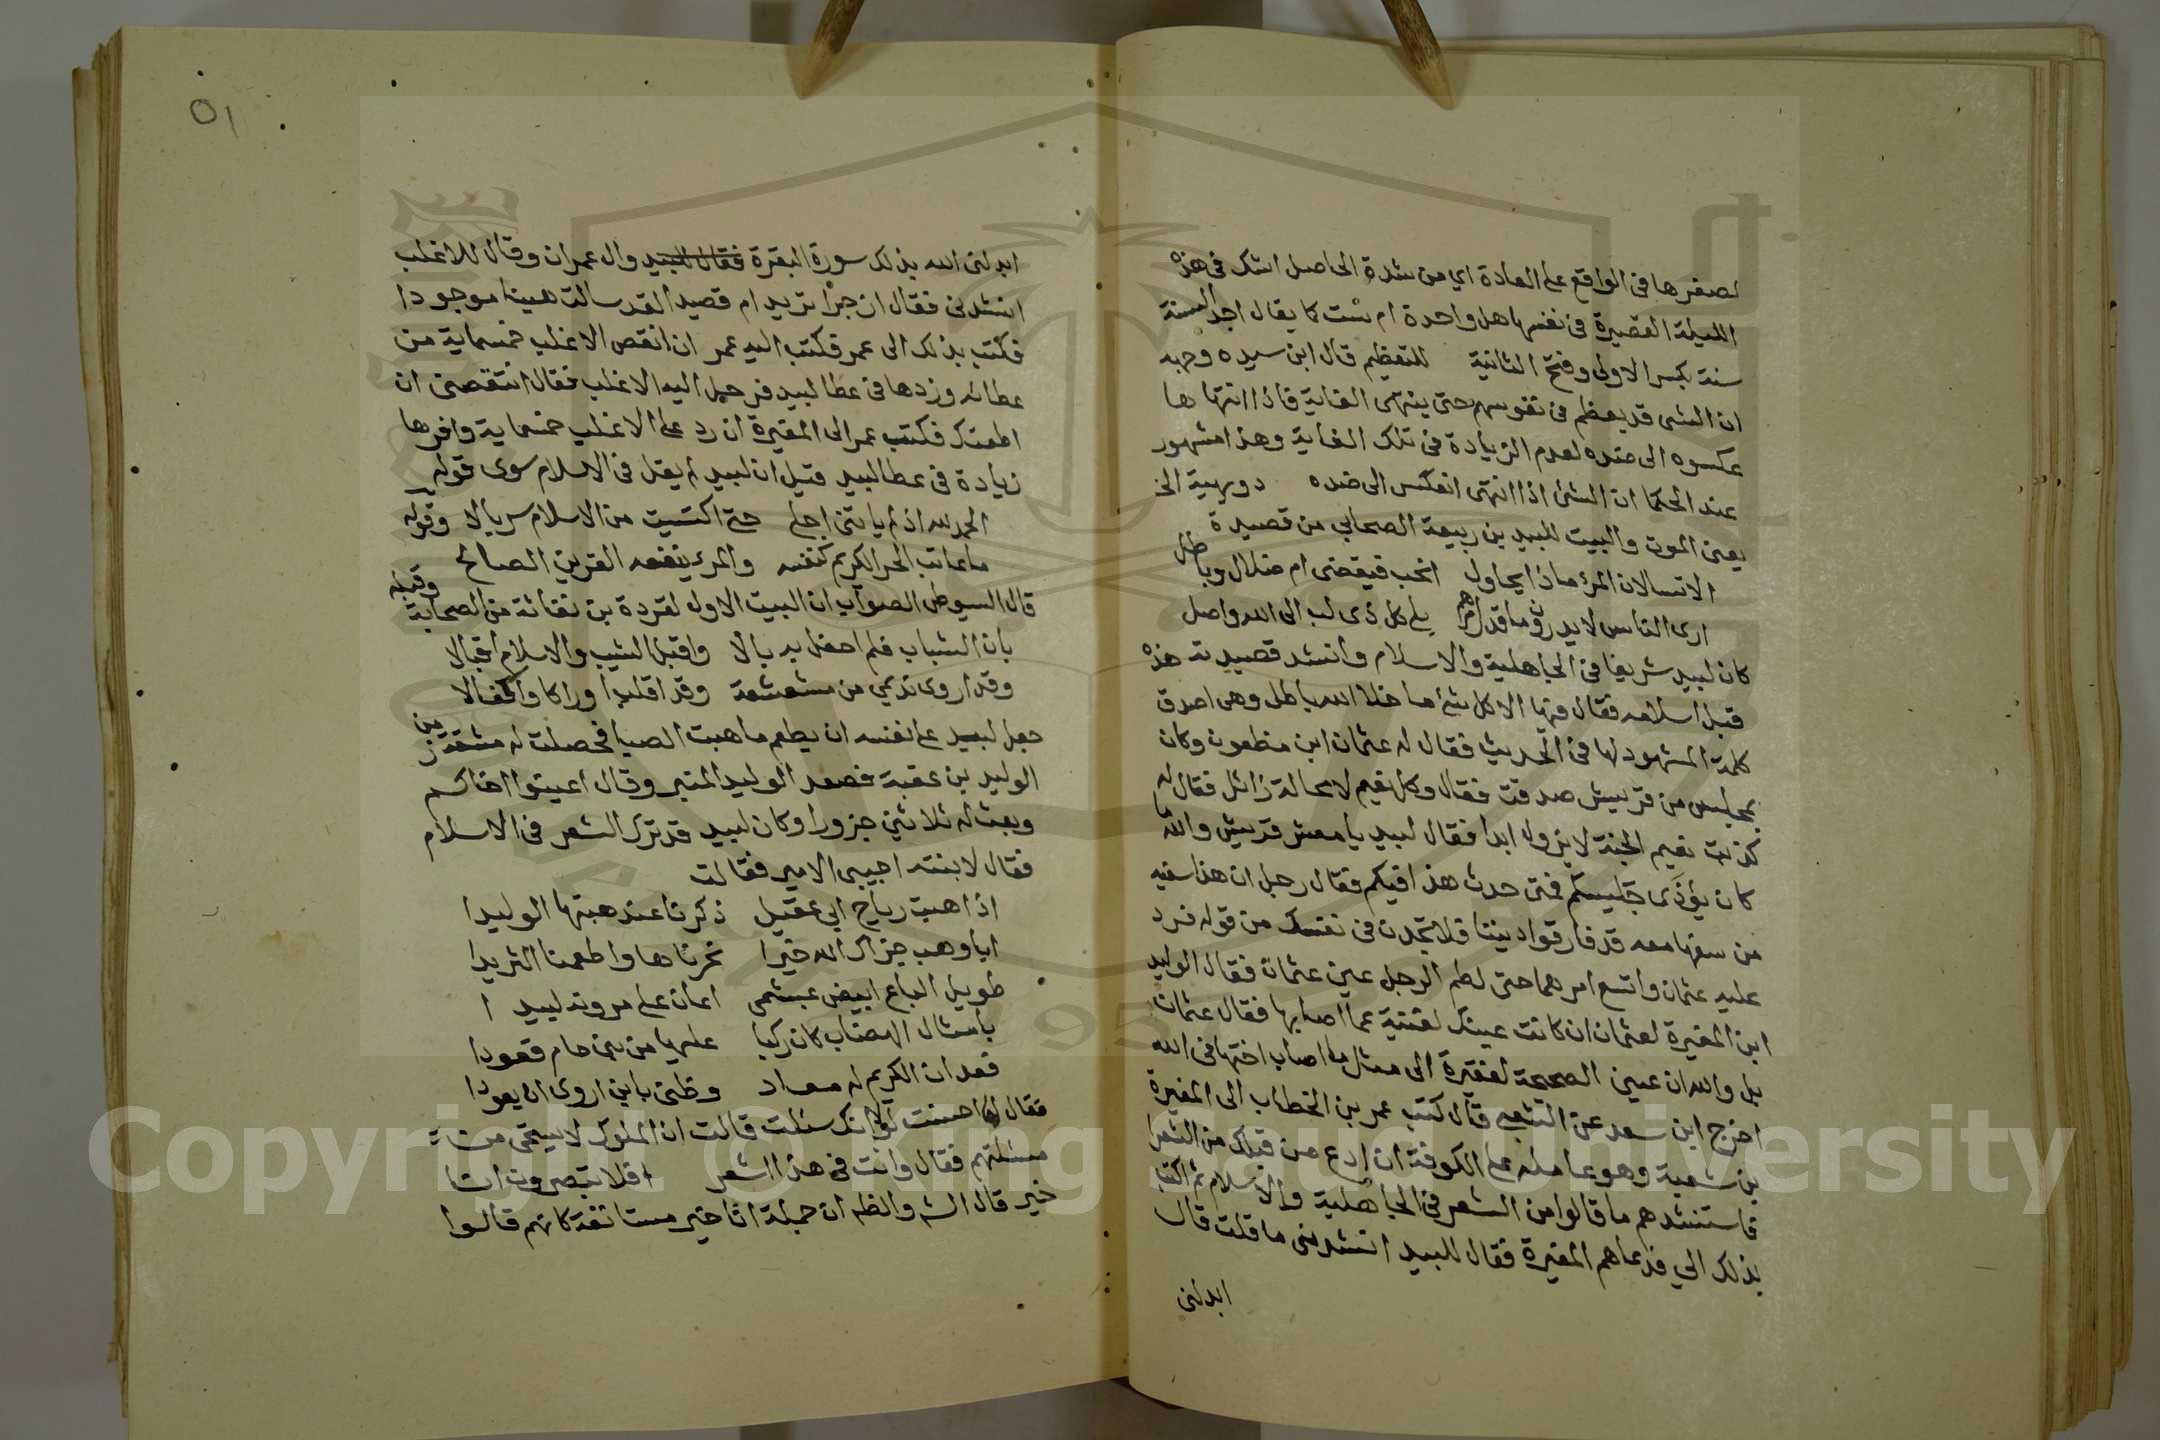 لصغرها في الواقع على العادة اي من شدة الحاصل اشك في هذه
الليلة القصيرة في نفسها هل واحدة ام ست كما يقال اجد السنة
سنة بكسر الاولى وفتح الثانية للتعظيم قال ابن سيده وجهه
ان الشى قد يعظم في نفوسهم حتى ينتهى الغاية فاذا انتهاها
عكسوه الى ضده لعدم الزيادة في تلك الغاية وهذا مشهور
عند الحكما ان الشئ اذا انتهى انعكس الى ضده دويهية الخ
يعنى الموت والبيت للبيد بن ربيعة الصحابي من قصيدة
الا تسالان المرء ماذا يحاول انحب فيقضى ام ضلال وباطل
ارى الناس لا يدرون ما قدر امرهم بلى كل ذى لب الى الله واصل
كان لبيد شريفا في الجاهلية والاسلام وانشد قصيدته هذه
قبل اسلامه فقال فيها الا كل شئ ما خلا الله باطل وهى اصدق
كلمة المشهود لها في الحديث فقال له عثمان ابن مظعون وكان
بمجلس من قريش صدقت فقال وكل نعيم لا محالة زائل فقال له
كذبت نعيم الجنة لا يزول ابدا فقال لبيد يا معشر قريش والله ما
كان يؤذى جليسكم فمتى حدث هذا فيكم فقال رجل ان هذا سفيه
من سفها معه قد فارقوا ديننا فلا تجدن في نفسك من قوله فرد
عليه عثمان واتسع امرهما حتى لطم الرجل عين عثمان فقال الوليد
ابن المغيرة لعثمان ان كانت عينك لغنية عما اصابها فقال عثمان
بل والله ان عينى الصحيحة لفقيرة الى مثل ما اصاب اختها في الله
اخرج ابن سعد عن الشعبى قال كتب عمر بن الخطاب الى المغيرة
بن شعبة وهو عامله على الكوفة ان ادع من قبلك من الشعرا
فاستنشدهم ما قالوا من الشعر في الجاهلية والاسلام ثم اكتب
بذلك الي فدعاهم المغيرة فقال للبيد انشدنى ما قلت قال
ابدلنى
٥١
ابدلنى الله بذلك سورة البقرة فقال للبيد وال عمران وقال للاغلب
انشدنى فقال ارجزا تريد ام قصيدا لقد سالت هينا موجودا
فكتب بذلك الى عمر فكتب اليه عمر ان انقص الاغلب خمسماية من
عطائه وزدها في عطا لبيد فرحل اليه الاغلب فقال اتنقصنى ان
اطعتك فكتب عمر الى المغيرة ان رد على الاغلب خمسماية واقرها
زيادة في عطا لبيد قيل ان لبيد لم يقل في الاسلام سوى قوله
الحمد لله اذ لم ياتنى اجلي حتى اكتسيت من الاسلام سربالا وقوله
ما عاتب الحر الكريم كنفسه والمرء ينفعه القرين الصالح
قال السيوطى الصواب ان البيت الاول لقردة بن نفاثة من الصحابة وقبله
بان الشباب فلم احفل به بالا واقبل الشيب والاسلام اقبالا
وقد اروى نديمي من مشعشعة وقد اقلب اوراكا واكفالا
جعل لبيد على نفسه ان يطعم ما هبت الصبا فحصلت له مشقة زمن
الوليد بن عقبة فصعد الوليد المنبر وقال اعينوا اخاكم
وبعث له ثلاثين جزورا وكان لبيد قد ترك الشعر في الاسلام
فقال لابنته اجيبى الامير فقالت
اذا هبت رياح ابي عقيل ذكرنا عند هبتها الوليدا
ابا وهب جزاك الله خيرا نحرناها واطعمنا الثريدا
طويل الباع ابيض عبشمى اعان على مروته لبيدا
بامثال الهضاب كان ركبا عليها من بنى حام قعودا
فعد ان الكريم له معاد وظنى بابن اروى ان يعودا
فقال لها احسنت لولا انك سئلت قالت ان الملوك لا يستحى من
مسئلتهم فقال وانت في هذا اشعر افلا تبصرون انا
خير قال الش والظه ان جملة انا خير مستانفة كانهم قالوا